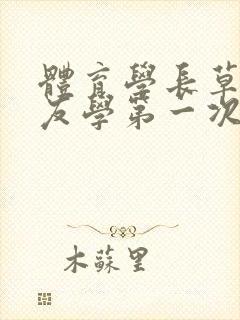 體育學長草
友學第一次
木蘇里